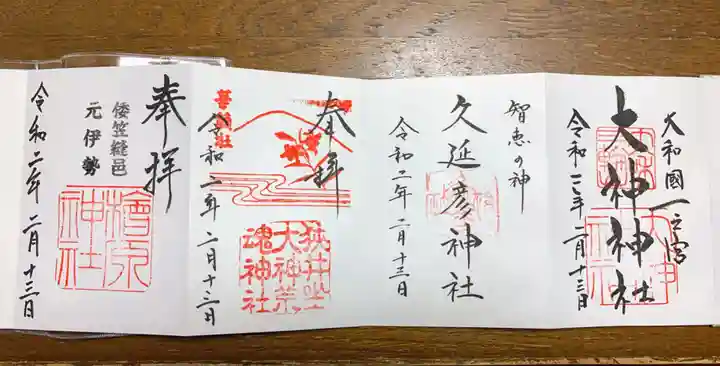 大和國一之宮
大神神社
令和二年二月十三日
智恵の神
久延彦神社
令和二年二月十三日
奉拝
華鎮社
狭井坐
大神荒
魂神社
令和二年二月十三日
奉拝
倭笠縫邑
元伊勢
檜原
神社
令和二年二月十三日